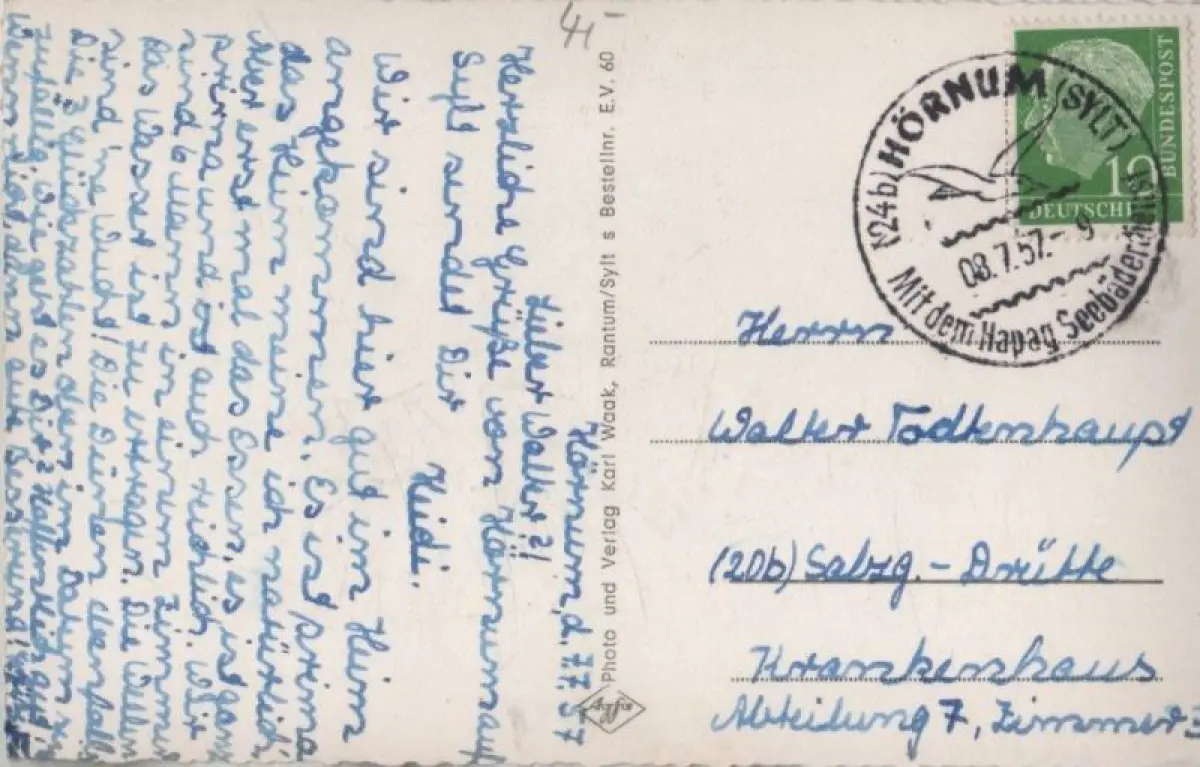 4,-
Hörnum, d. 7.7.57
Lieber Walter!
Herzliche Grüße von Hörnum auf
Sylt sendet Dir
Heidi.
Wir sind hier gut im Heim
angekommen. Es ist prima
das Heim meine ich natürlich
Aber erst mal das Essen, es ist ganz
prima und ist auch reichlich. Wir
sind 6 Mann in einem Zimmer
das Wasser ist zu ertragen. Die Wellen
sind 'ne Wucht! Die Dünen ebenfalls
Die 7 Glückszahlen oben im Datum
zufällig. Wie geht es Dir? Hoffentlich gut!
Wenn nicht, dann gute Besserung!
Photo und Verlag Karl Waak, Rantum/Sylt s Bestellnr. E.V. 60
Agfa
(24b) HÖRNUM (SYLT)
08.7.57.- 9
Mit dem Hapag Seebäderdienst
BUNDESPOST
10
DEUTSCHE
Herrn
Walter Todtenhaupt
(20b) Salzg.- Drütte
Krankenhaus
Abteilung 7, Zimmer